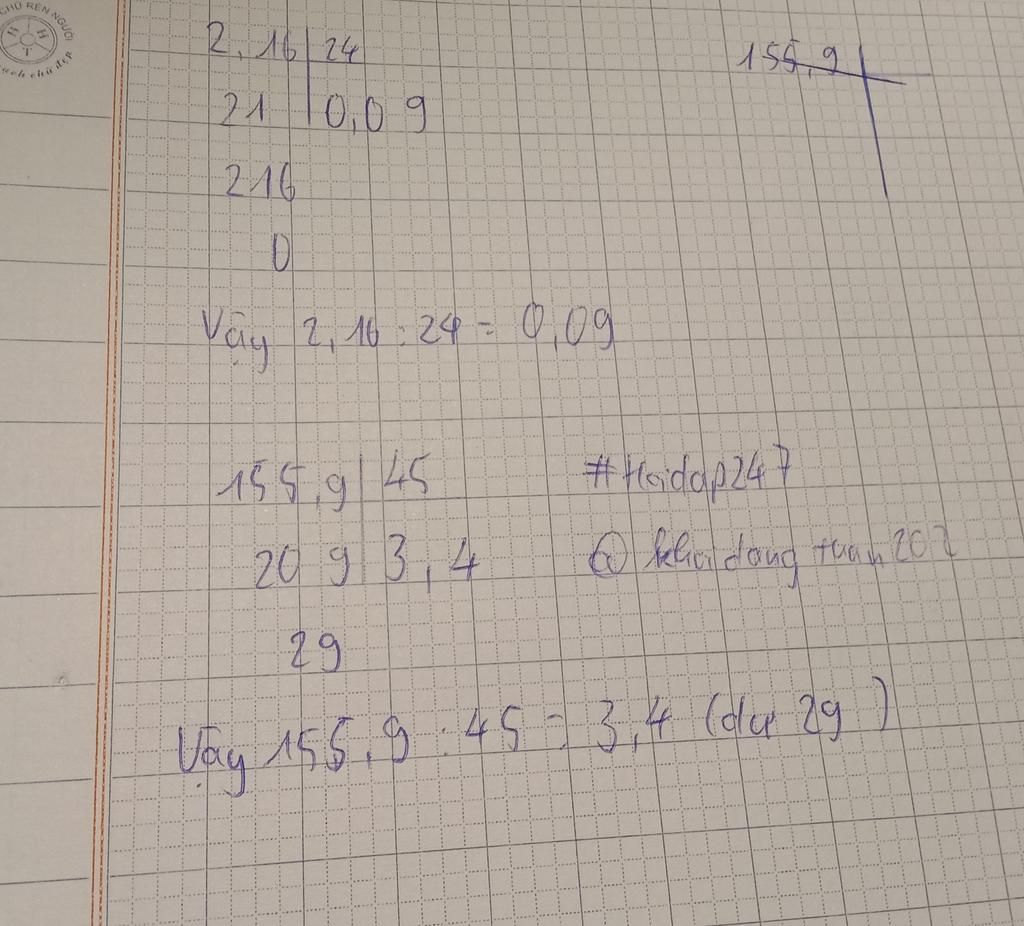 CHỮ RÈN NGƯỜI
sạch chữ đẹp
2,16 24
155,9
21 0,09
216
0
Vậy 2,16 : 24 = 0,09
155,9 45
#Hoidap247
209 3,4
29
Vậy 155,9 : 45 = 3,4 (dư 29)